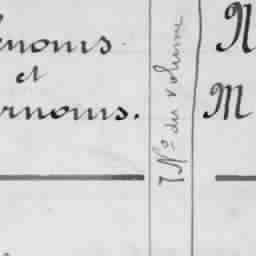 énoms
et
rnoms.
N° du volume
N
M